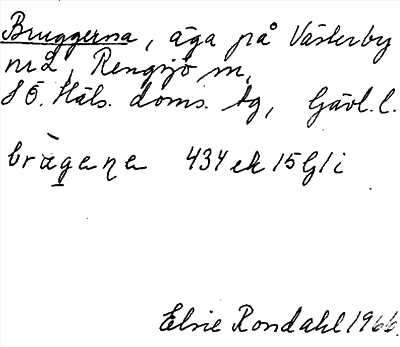 Bruggerna, äga på Västerby
nr 2, Rengsjö sn,
S Ö. Häls. doms. tg, Gävl. l.
brägaṇa 434 ek 15 G 1 i
Elsie Rondahl 1966.